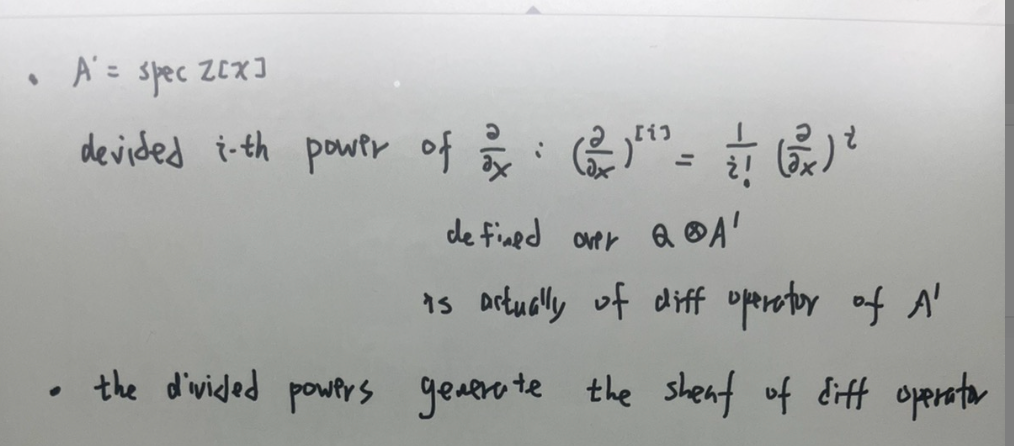 • A' = spec Z[X]
devided i-th power of ∂/∂x : (∂/∂x)^[i] = 1/i! (∂/∂x)^i
defined over Q ⊗ A'
is actually of diff operator of A'
• the divided powers generate the sheaf of diff operator